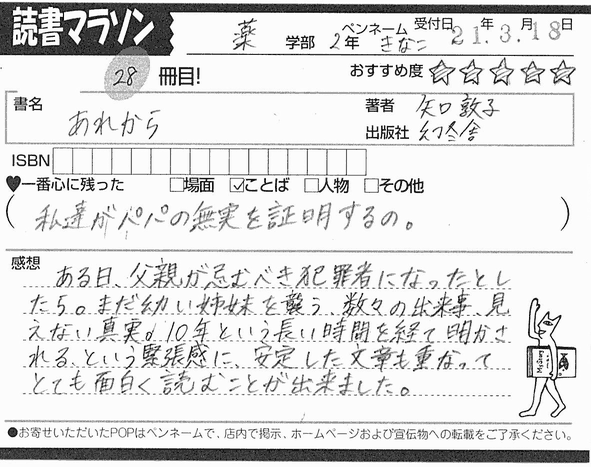 読書マラソン
薬 学部 2年 ペンネーム きなこ 受付日 21年 3月 18日
28 冊目! おすすめ度 ☆☆☆☆☆
書名 あれから 著者 矢口敦子
出版社 幻冬舎
ISBN
♥一番心に残った □場面 ☑ことば □人物 □その他
(私達がパパの無実を証明するの。)
感想
ある日、父親が忌むべき犯罪者になったとし
たら。まだ幼い姉妹を襲う、数々の出来事、見
えない真実。10年という長い時間を経て明かさ
れる、という緊張感に、安定した文章も重なって
とても面白く読むことが出来ました。
●お寄せいただいたPOPはペンネームで、店内で掲示、ホームページおよび宣伝物への転載をご了承ください。